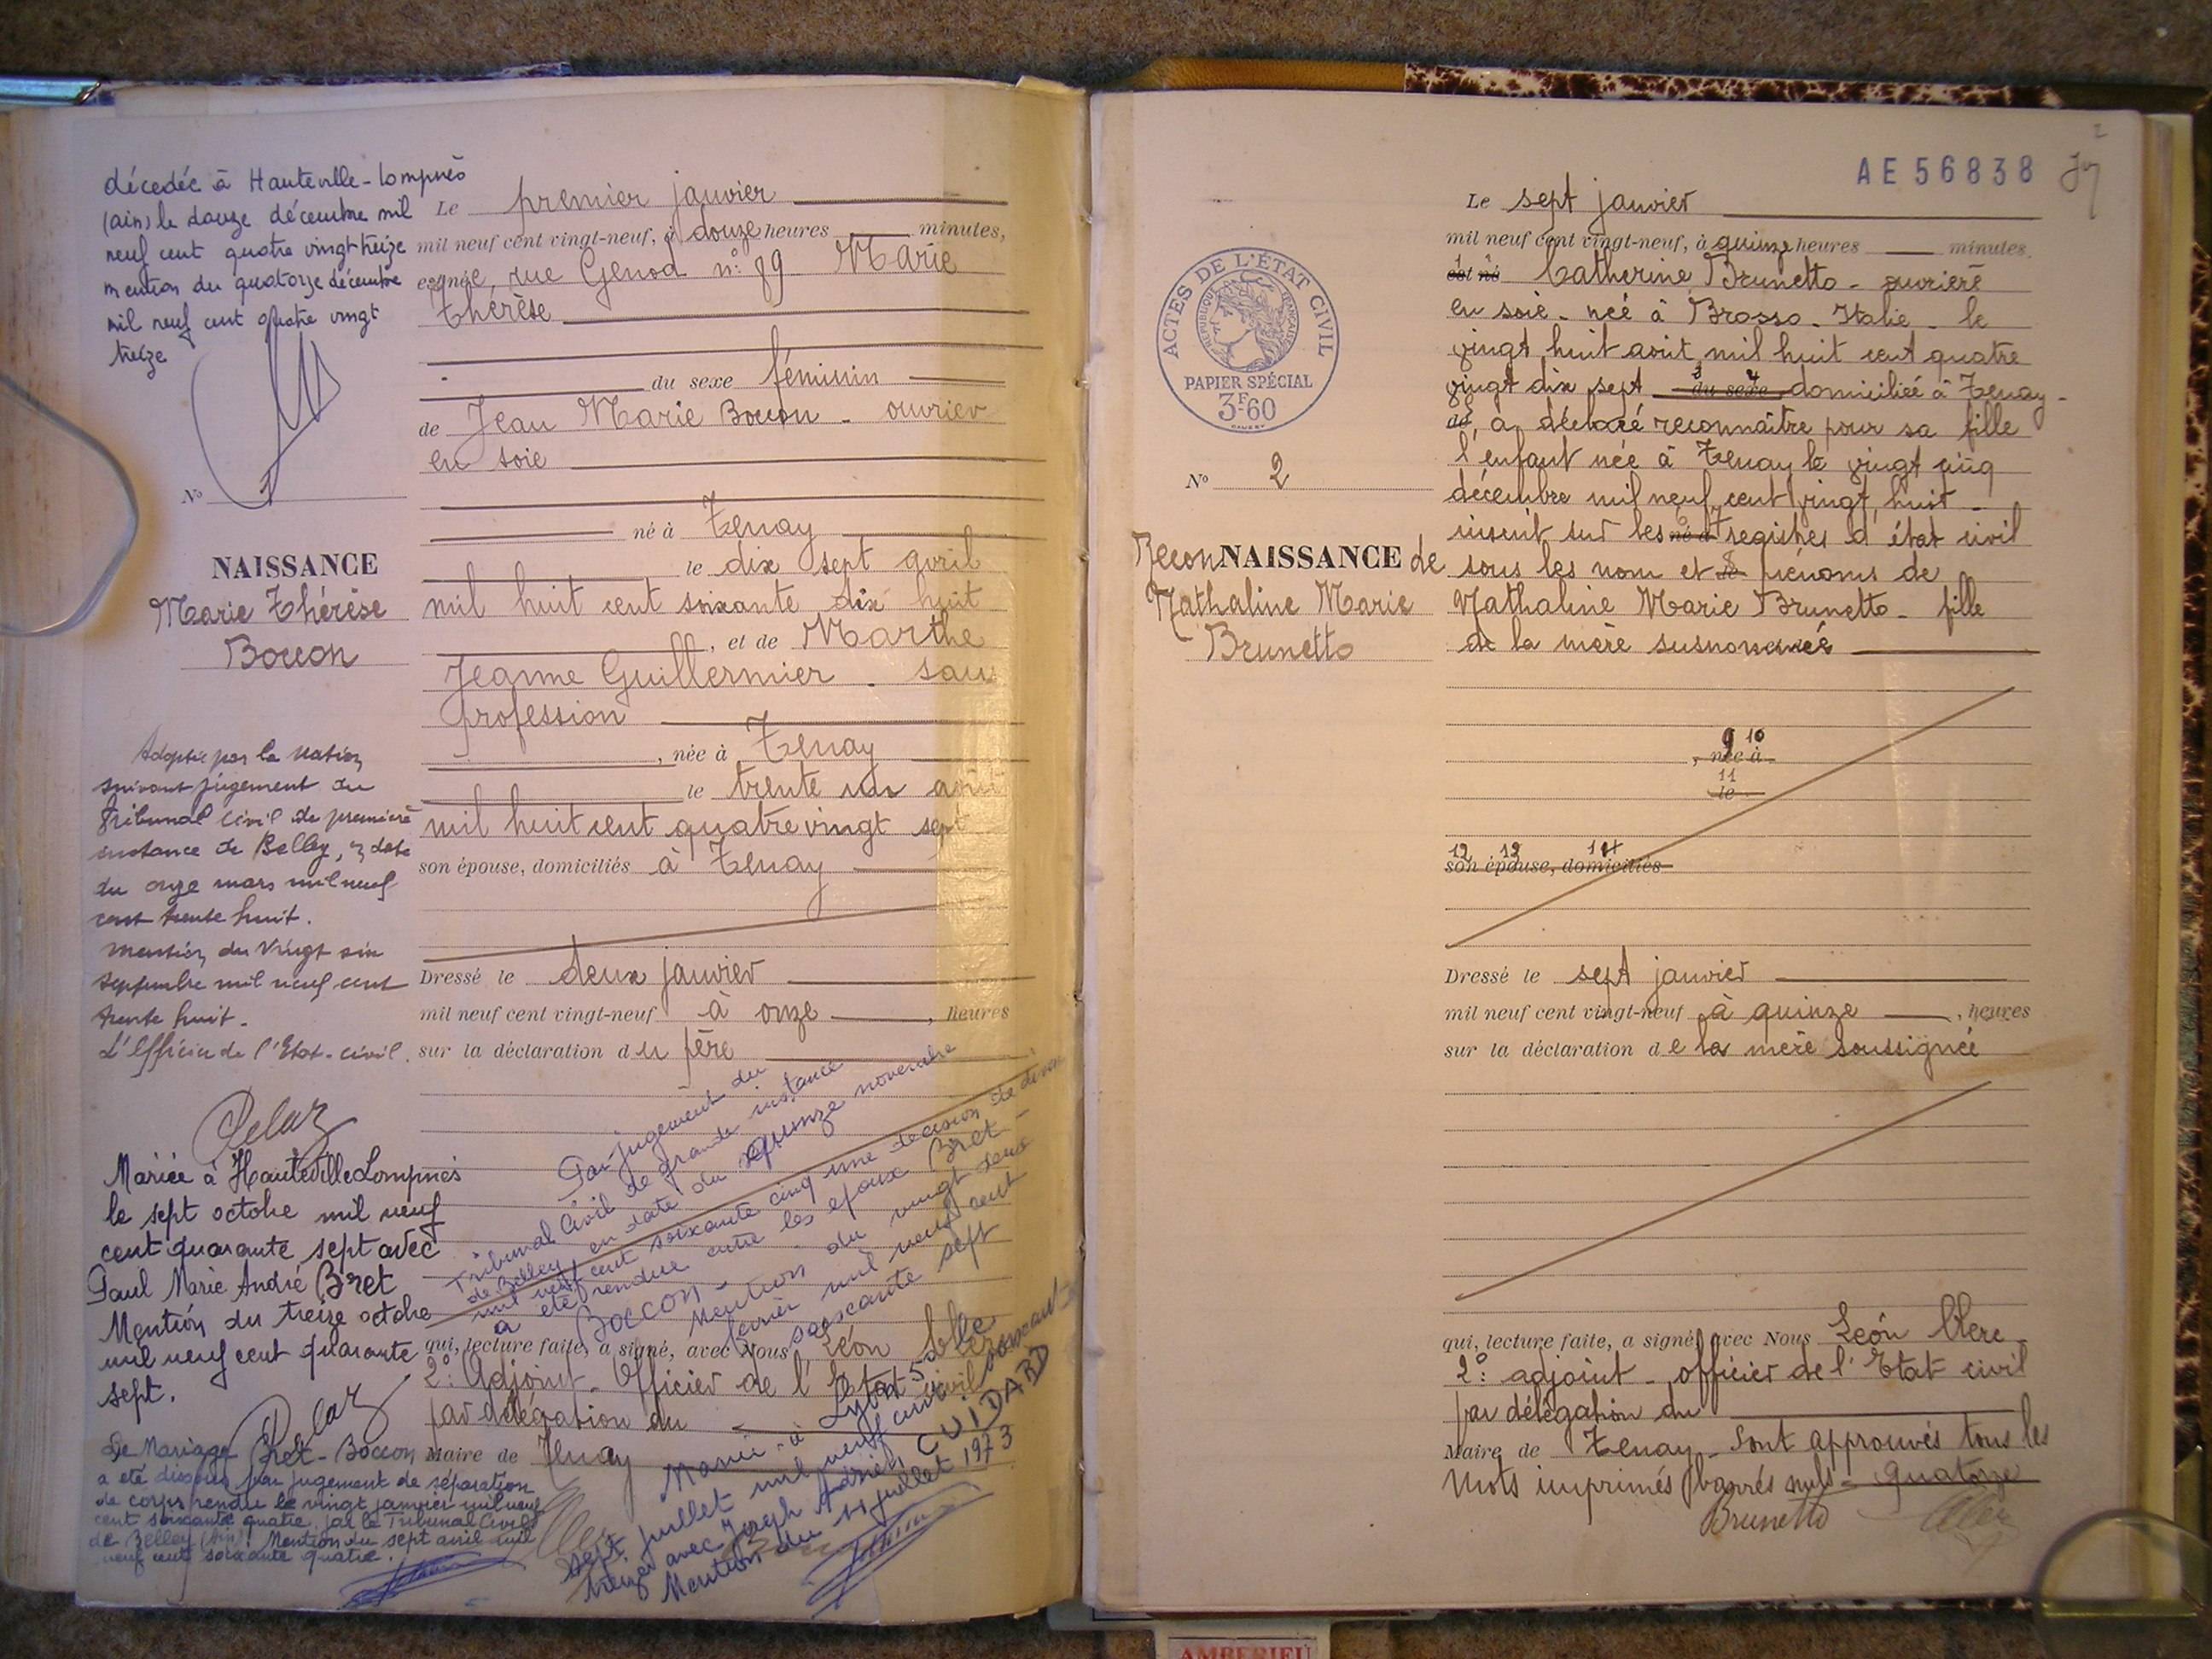 décedée à Hauteville-Lompnès
(ain) le douze décembre mil
neuf cent quatre vingt treize
mention du quatorze décembre
mil neuf cent quatre vingt
treize
No 1
NAISSANCE
Marie Thérèse
Boccon
Adoptée par la Nation
suivant jugement du
Tribunal Civil de première
instance de Belley, en date
du onze mars mil neuf
cent trente huit.
Mention du Vingt six
septembre mil neuf cent
trente huit.
L'officier de l'Etat-civil.
Pelaz
Mariée à Hauteville Lompnès
le sept octobre mil neuf
cent quarante sept avec
Paul Marie André Bret
Mention du treize octobre
mil neuf cent quarante
sept.
Pelaz
Le Mariage Bret-Boccon
a été dissous par jugement de séparation
de corps rendu le vingt janvier mil neuf
cent soixante quatre, par le Tribunal Civil
de Belley (Ain). Mention du sept avril mil
neuf cent soixante quatre.
Le premier janvier
mil neuf cent vingt-neuf, à douze heures minutes,
est née, rue Genod n° 89 Marie
Thérèse
du sexe féminin
de Jean Marie Boccon - ouvrier
en soie
né à Tenay
le dix sept avril
mil huit cent soixante dix huit
, et de Marthe
Jeanne Guillermier - sans
profession
, née à Tenay
le trente un août
mil huit cent quatre vingt sept
son épouse, domiciliés à Tenay
Dressé le deux janvier
mil neuf cent vingt-neuf à onze , heures
sur la déclaration du père
Par jugement du
Tribunal Civil de grande instance
de Belley en date du quinze novembre
mil neuf cent soixante cinq une décision de divorce
a été rendue entre les époux Bret -
BOCCON - Mention du vingt deux
février mil neuf cent
soixante sept
qui, lecture faite, a signé, avec Nous Léon Clerc
2° Adjoint - Officier de l'Etat civil
par délégation du
Maire de Tenay
Mariée à Lyon 5e
sept juillet mil neuf cent soixante
treize avec Joseph Adrien CUIDARD
Mention du 11 juillet 1973
2
AE 56838
ACTES DE L'ÉTAT CIVIL
RÉPUBLIQUE FRANÇAISE
PAPIER SPÉCIAL
3F60
No 2
ReconNAISSANCE de
Nathaline Marie
Brunetto
Le sept janvier
mil neuf cent vingt-neuf, à quinze heures minutes.
est né Catherine Brunetto - ouvrière
en soie - née à Brosso - Italie - le
vingt huit août mil huit cent quatre
vingt dix sept du sexe domiciliée à Tenay -
de, a déclaré reconnaître pour sa fille
l'enfant née à Tenay le vingt cinq
décembre mil neuf cent vingt huit -
inscrit sur les né à registres d'état civil
sous les nom et le prénoms de
Nathaline Marie Brunetto - fille
de la mère susnommée
9 10
, née à
11
le
12 13 14
son épouse, domiciliés
Dressé le sept janvier
mil neuf cent vingt-neuf à quinze , heures
sur la déclaration de la mère soussignée
qui, lecture faite, a signé, avec Nous Léon Clerc
2° adjoint - officier de l'Etat civil
par délégation du
Maire de Tenay - Sont approuvés tous les
mots imprimés barrés nuls - quatorze
Brunetto
AMBERIEU